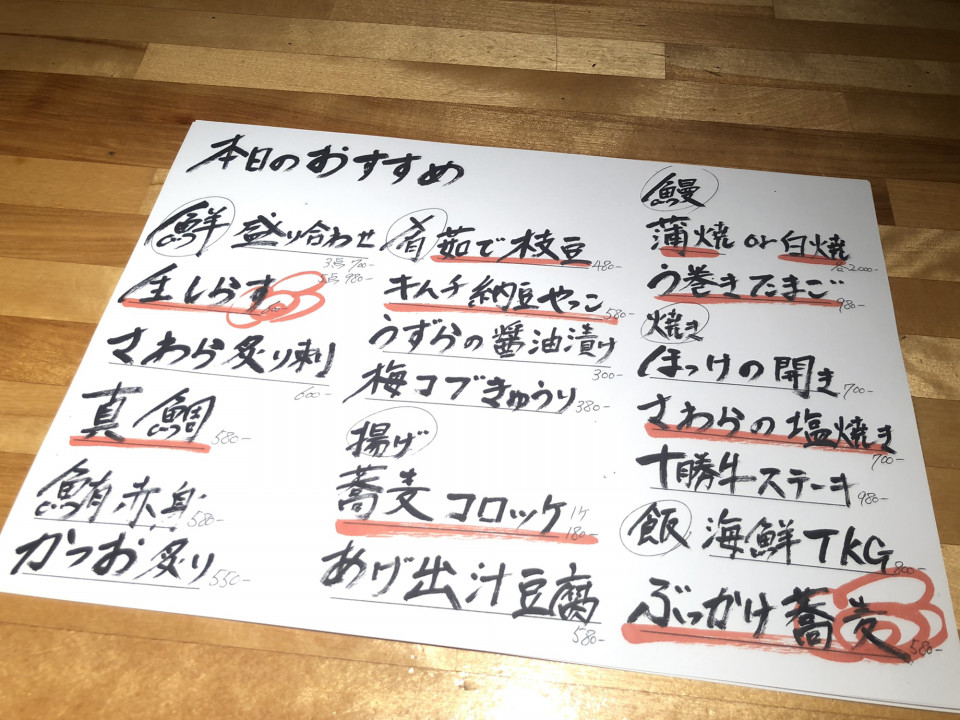 本日のおすすめ
鮮 盛り合わせ
3点 700-
5点 980-
生しらす
さわら炙り刺
600-
真鯛
580-
鮪赤身
580-
かつお炙り
550-
肴 茹で枝豆
480-
キムチ納豆やっこ
580-
うずらの醤油漬け
300-
梅コブきゅうり
380-
揚げ
蕎麦コロッケ
1ケ
180-
あげ出汁豆腐
580-
鰻
蒲焼 or 白焼
各2,000-
う巻きたまご
980-
焼き
ほっけの開き
700-
さわらの塩焼き
700-
十勝牛ステーキ
980-
飯 海鮮TKG
800-
ぶっかけ蕎麦
580-